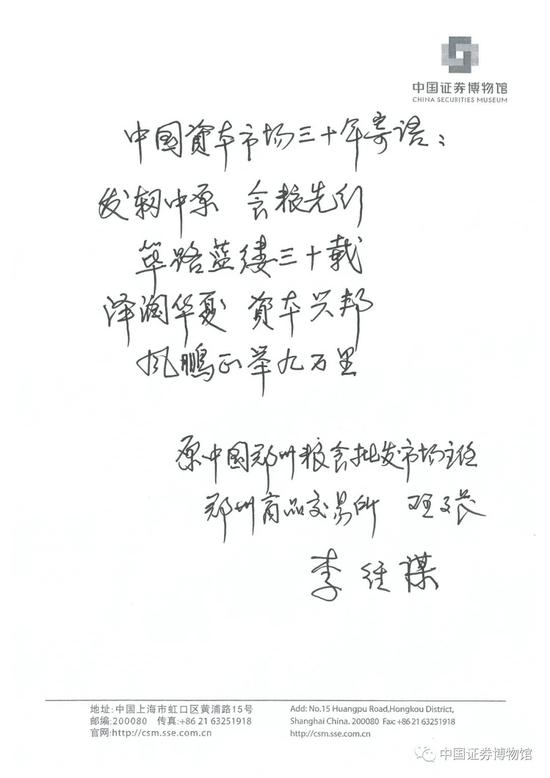 中国证券博物馆
CHINA SECURITIES MUSEUM
中国資本市场三十年寄语：
发轫中原 食粮先行
筚路蓝缕三十载
泽润华夏 資本兴邦
风鹏正举九万里
原中国郑州粮食批发市场主任
郑州商品交易所 理事长
李经谋
地址:中国上海市虹口区黄浦路15号
邮编:200080 传真:+86 21 63251918
官网:http://csm.sse.com.cn
Add: No.15 Huangpu Road,Hongkou District,
Shanghai China. 200080 Fax: +86 21 63251918
http://csm.sse.com.cn
中国证券博物馆